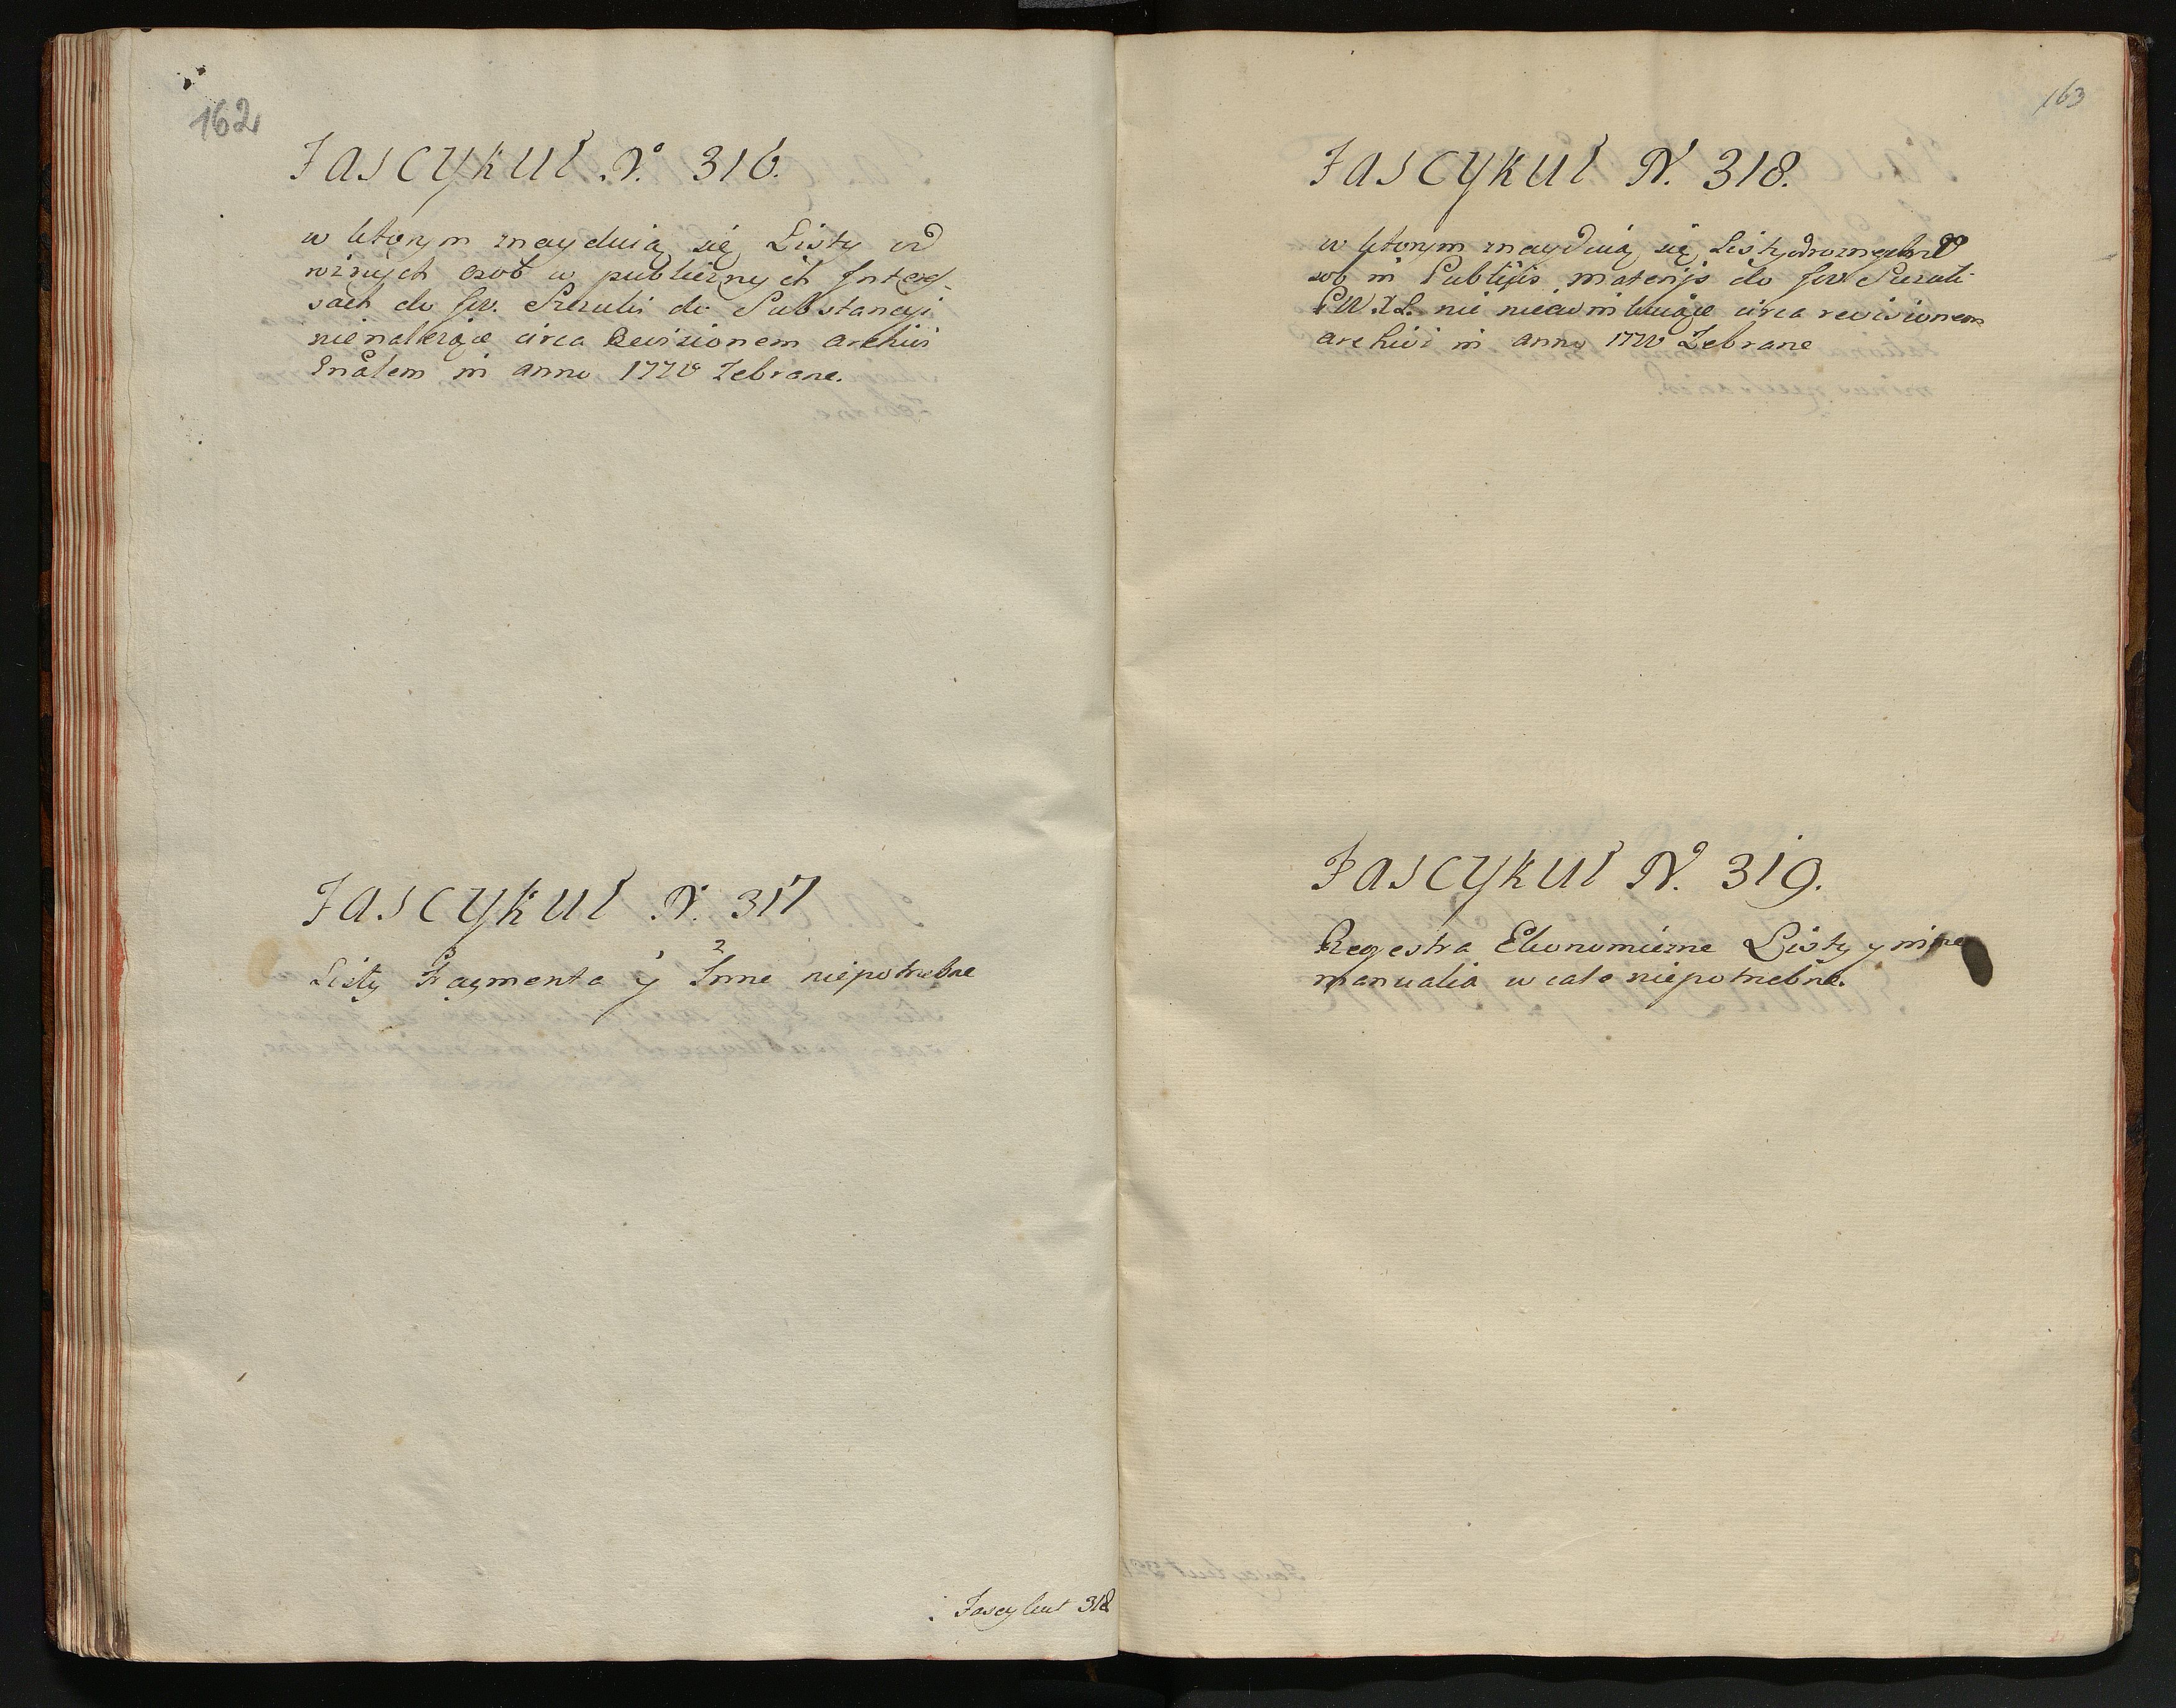 162
Fascykuł N. 316.
w ktorym znayduią się Listy od
rożnych osob w publicznych Interes-
sach do
nienależące circa Revisionem archivi
in anno 1770 Zebrane.
Fascykuł N. 317
Listy Fragmenta y Inne niepotrzebne
Fascykuł 318
163
Fascykuł N. 318.
w ktorym znayduią się Listy od roznych o
sob in Publicis materijs do
nic circa revisionem
archivi in anno 1770 Zebrane
Fascykuł N. 319.
Regestra Ekonomiczne Listy y inne
manualia w cale niepotrzebne.